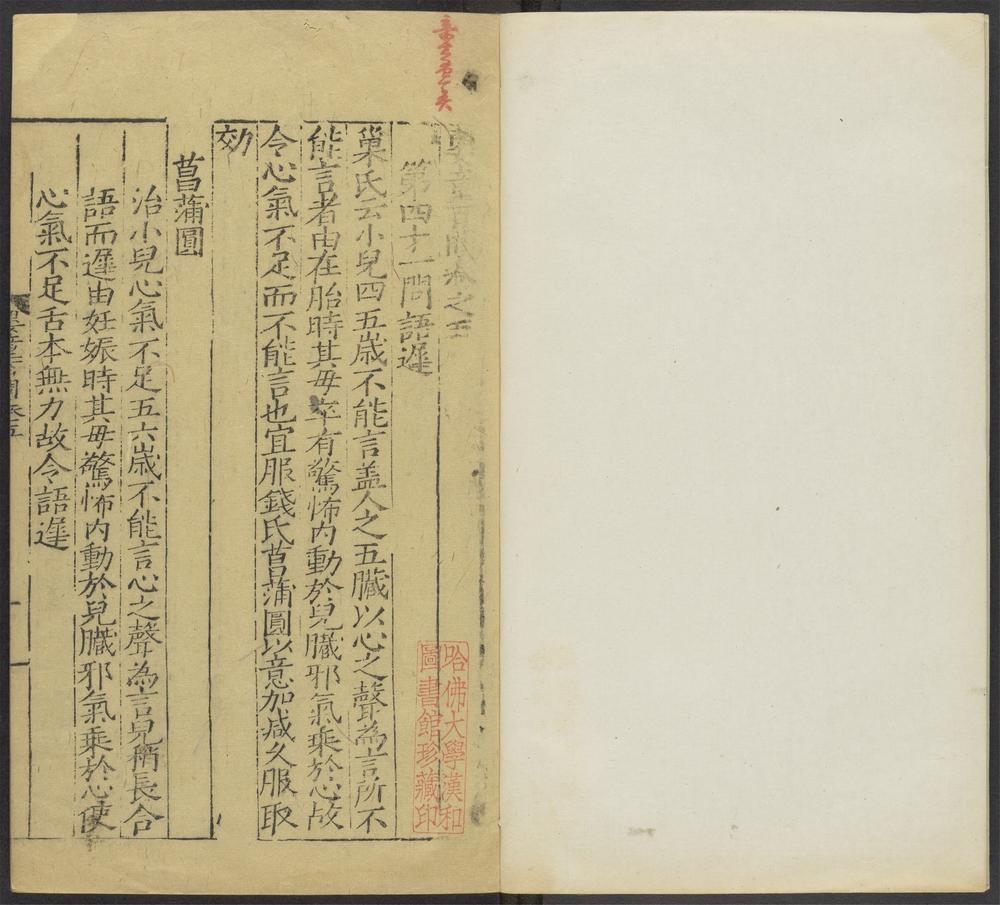 嬰童百問卷之五
第四十一問語遲
巢氏云小兒四五歳不能言盖人之五臟以心之聲為言所不
能言者由在胎時其母卒有驚怖内動於兒臟邪氣乘於心故
令心氣不足而不能言也宜服錢氏菖蒲圓以意加减久服取
効
菖蒲圓
治小兒心氣不足五六歳不能言心之聲為言兒稍長合
語而遲由妊娠時其母驚怖内動於兒臟邪氣乘於心使
心氣不足舌本無力故令語遲
嬰童百問卷五
一
哈佛大學漢和
圖書館珍藏印